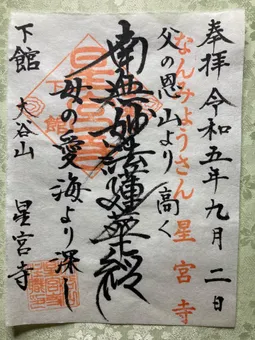 奉拝 令和五年九月二日
なんみょうさん 星宮寺
父の恩山より高く
南無妙法蓮華経
母の愛海より深し
下館 大谷山 星宮寺